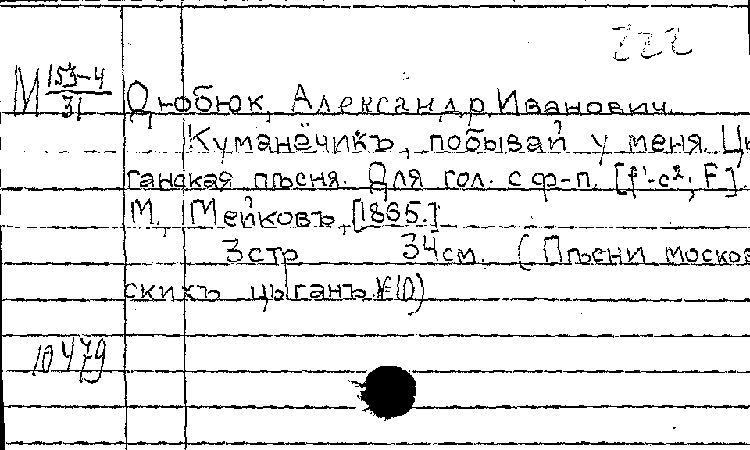 222
М 153-4/31
Дюбюк, Александр Иванович.
Куманёчикъ, побывай у меня. Цы
ганская пѣсня. Для гол. с ф-п. [f¹-c²; F].
М., Мейковъ, [1865.]
3 стр 34 см. (Пѣсни москов
скихъ цыганъ №10)
10479